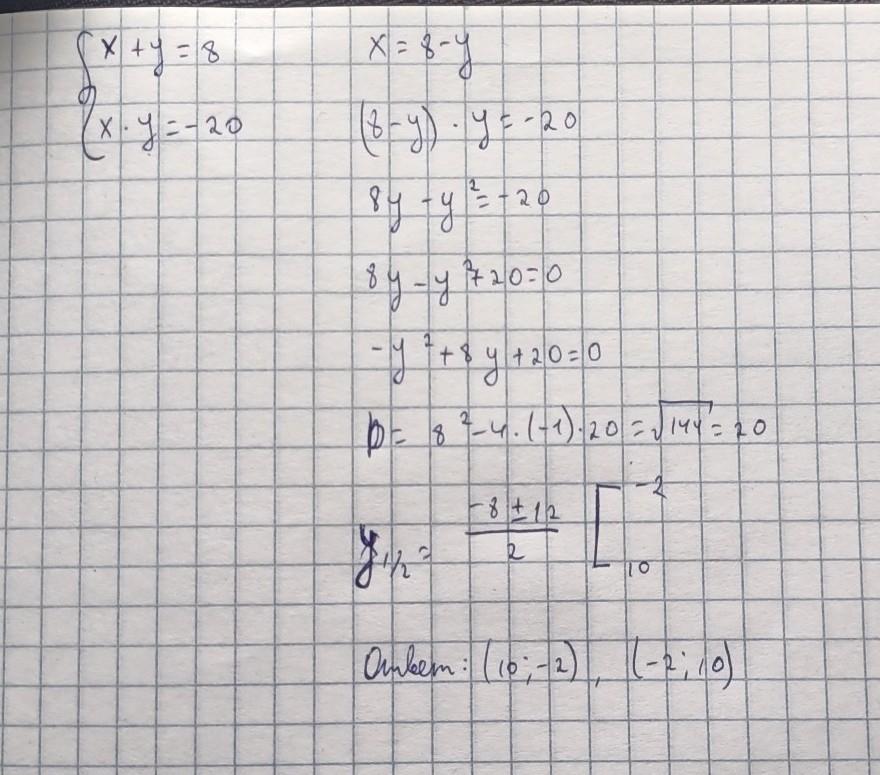 {x + y = 8
{x · y = -20
x = 8 - y
(8 - y) · y = -20
8y - y² = -20
8y - y² + 20 = 0
-y² + 8y + 20 = 0
D = 8² - 4 · (-1) · 20 = √144 = 20
y₁/₂ = (-8 ± 12)/2 [-2
10
Ответ: (10; -2), (-2; 10)